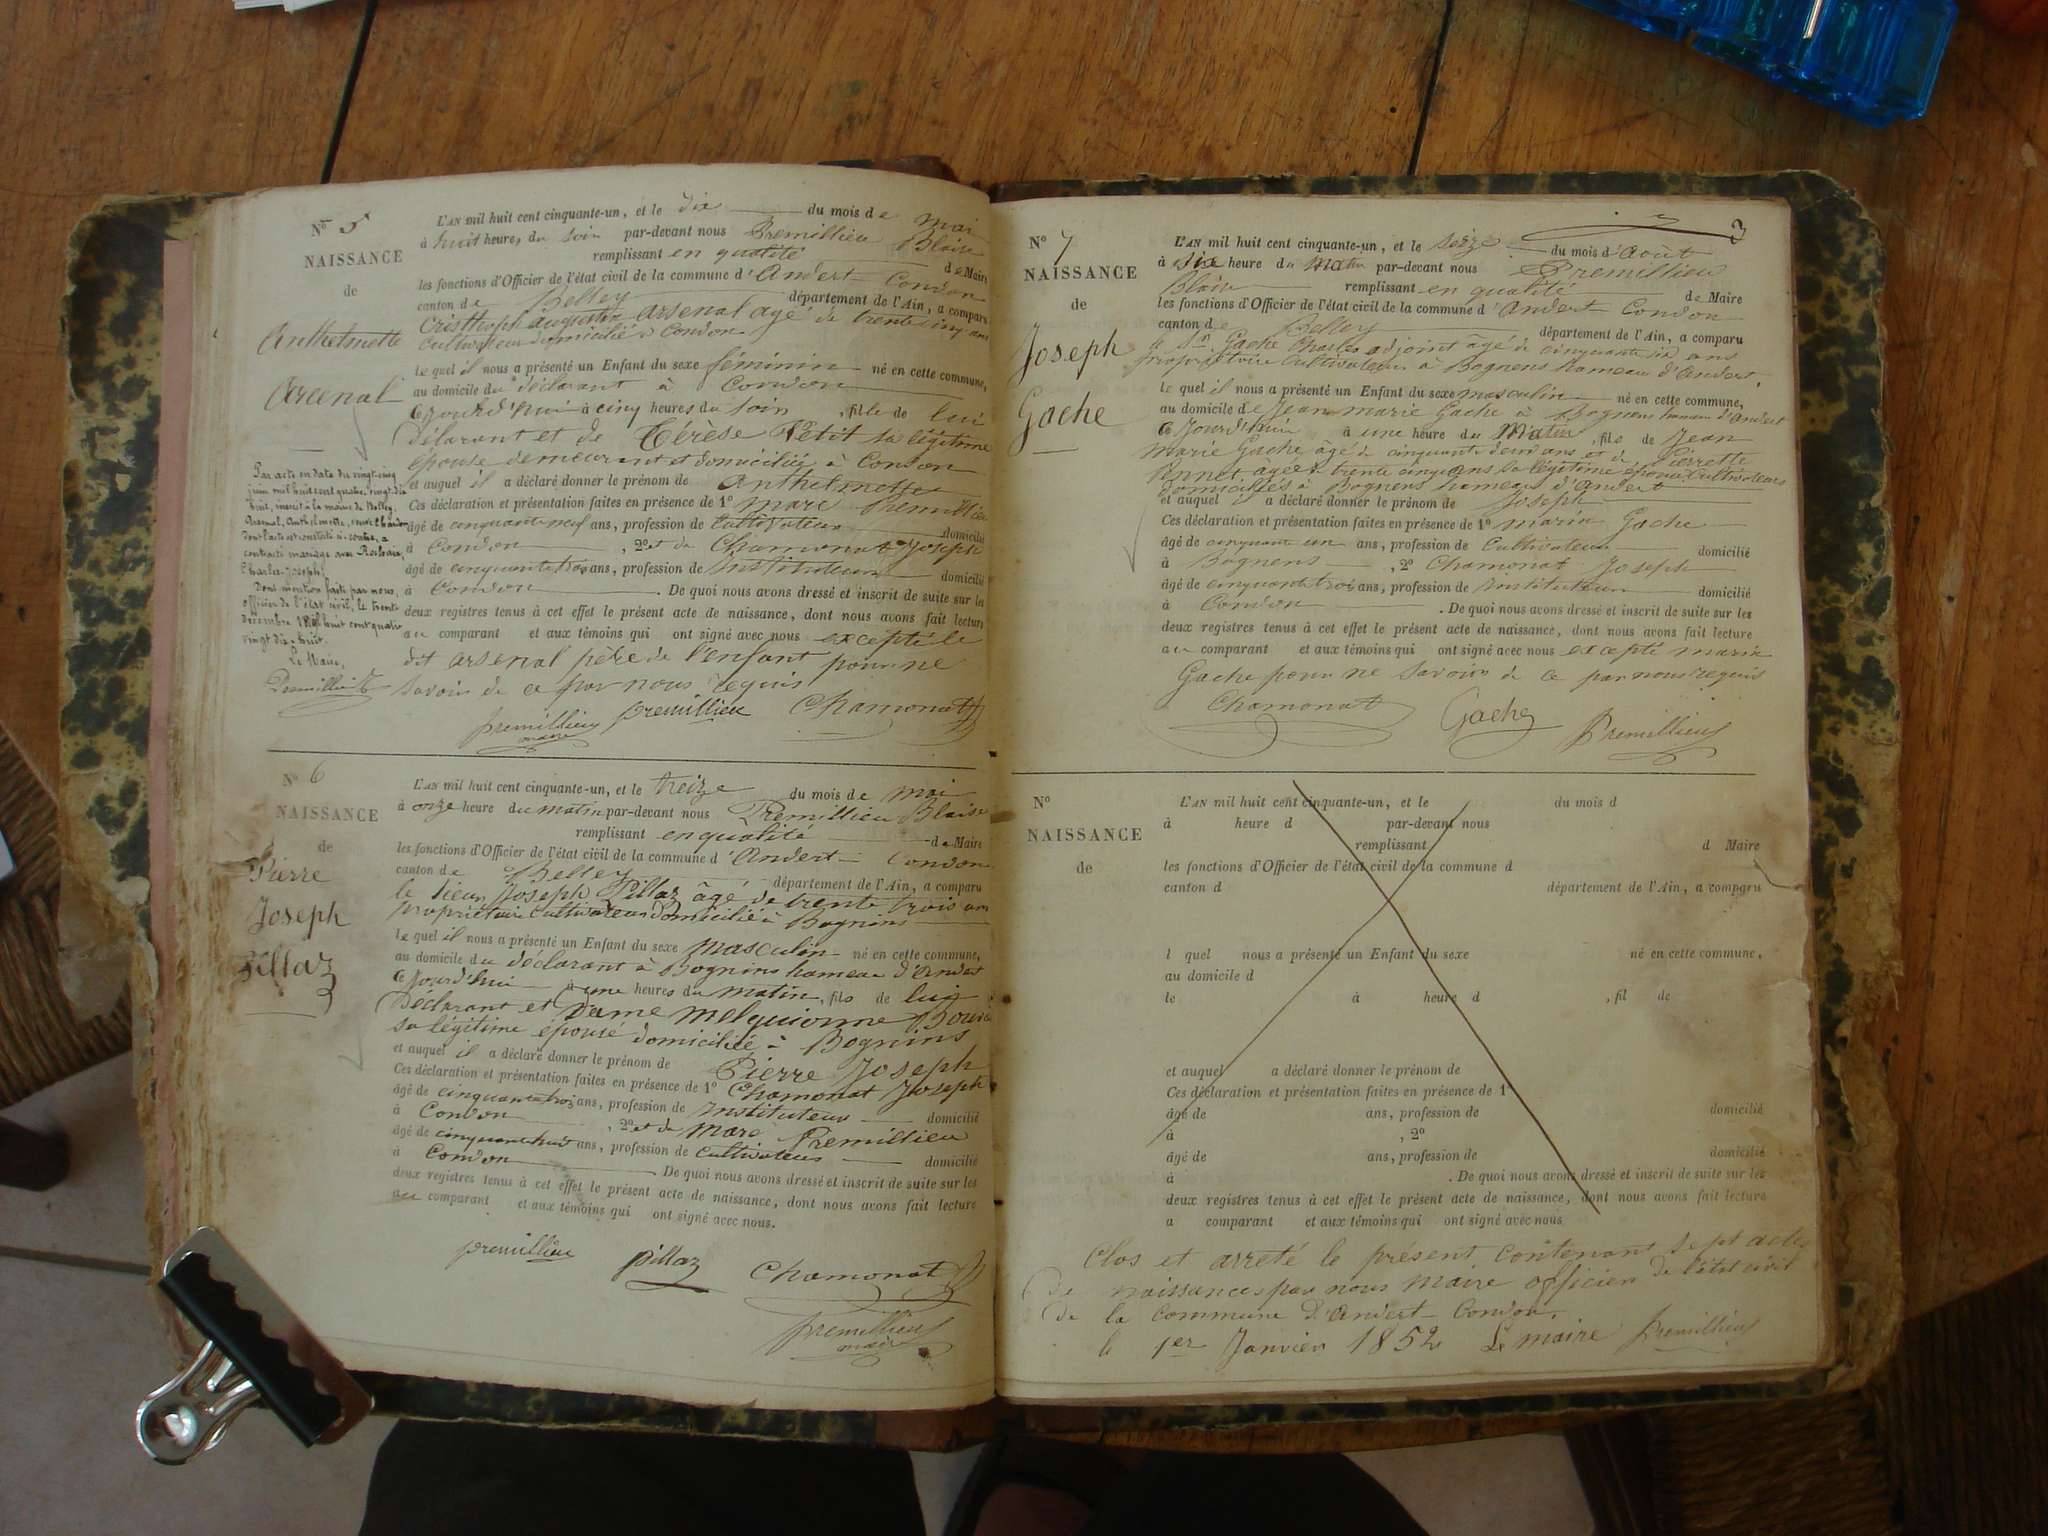 No 5
NAISSANCE
de
Anthelmette
Arcenal
L'AN mil huit cent cinquante-un, et le dix du mois de mai
à huit heures du soir par-devant nous Premillieu Blaise
remplissant en qualité de Maire
les fonctions d'Officier de l'état civil de la commune d'Andert Condon
canton de Belley département de l'Ain, a comparu
Cristhoph augustin arsenal agé de trente cinq ans
Cultivateur domicilié à Condon
le quel il nous a présenté un Enfant du sexe féminin né en cette commune,
au domicile du déclarant à Condon
ce jourd'hui à cinq heures du soir, fille de lui
Déclarant et de Térèse Petit sa légitime
épouse demeurant et domiciliée à Condon
et auquel il a déclaré donner le prénom de Anthelmette
Ces déclaration et présentation faites en présence de 1° marc Premillieu
âgé de cinquante neuf ans, profession de Cultivateur domicilié
à Condon, 2° et de Chamonat Joseph
âgé de cinquante trois ans, profession de Instituteur domicilié
à Condon. De quoi nous avons dressé et inscrit de suite sur les
deux registres tenus à cet effet le présent acte de naissance, dont nous avons fait lecture
au comparant et aux témoins qui ont signé avec nous excepté le
dit arsenal père de l'enfant pour ne
savoir de ce par nous requis
premillieu maire premillieu Chamonat
Par acte en date du vingt-cinq
juin mil huit cent quatre-vingt-dix
huit, inscrit à la mairie de Belley,
Arsenal, Anthelmette,
dont l'acte est constaté ci-contre, a
contracté mariage avec
Charles-Joseph.
Dont mention faite par nous,
officier de l'état civil, le trente
décembre mil huit cent quatre
vingt dix-huit.
Le Maire,
Premillieu
No 6
NAISSANCE
de
Pierre
Joseph
Pillaz
L'AN mil huit cent cinquante-un, et le treize du mois de mai
à onze heure du matin par-devant nous Premillieu Blaise
remplissant en qualité de Maire
les fonctions d'Officier de l'état civil de la commune d'Andert Condon
canton de Belley département de l'Ain, a comparu
le sieur Joseph Pillaz âgé de trente trois ans
propriétaire Cultivateur domicilié à Bognins
le quel il nous a présenté un Enfant du sexe masculin né en cette commune,
au domicile du déclarant à Bognins hameau d'Andert
ce jourd'hui à une heures du matin, fils de lui
Déclarant et Dame melquionne
sa légitime épouse domiciliée à Bognins
et auquel il a déclaré donner le prénom de Pierre Joseph
Ces déclaration et présentation faites en présence de 1° Chamonat Joseph
âgé de cinquante trois ans, profession de Instituteur domicilié
à Condon, 2° et de marc Premillieu
âgé de cinquante huit ans, profession de Cultivateur domicilié
à Condon De quoi nous avons dressé et inscrit de suite sur les
deux registres tenus à cet effet le présent acte de naissance, dont nous avons fait lecture
au comparant et aux témoins qui ont signé avec nous.
premillieu pillaz Chamonat
premillieu maire
3
No 7
NAISSANCE
de
Joseph
Gache
L'AN mil huit cent cinquante-un, et le seize du mois d'Août
à six heure du matin par-devant nous Premillieu
Blaise remplissant en qualité de Maire
les fonctions d'Officier de l'état civil de la commune d'Andert Condon
canton de Belley département de l'Ain, a comparu
le Sr Gache Charles adjoint âgé de cinquante six ans
propriétaire Cultivateur à Bognens hameau d'Andert.
le quel il nous a présenté un Enfant du sexe masculin né en cette commune,
au domicile de Jean marie Gache à Bognens hameau d'Andert
ce Jourd'hui à une heure du Matin, fils de Jean
Marie Gache âgé de cinquante deux ans et de Pierrette
âgée de trente cinq ans sa légitime épouse Cultivateurs
domiciliés à Bognens hameau d'Andert
et auquel il a déclaré donner le prénom de Joseph
Ces déclaration et présentation faites en présence de 1° marin Gache
âgé de cinquante un ans, profession de Cultivateur domicilié
à Bognens, 2° Chamonat Joseph
âgé de cinquante trois ans, profession de Instituteur domicilié
à Condon. De quoi nous avons dressé et inscrit de suite sur les
deux registres tenus à cet effet le présent acte de naissance, dont nous avons fait lecture
au comparant et aux témoins qui ont signé avec nous excepté marin
Gache pour ne savoir de ce par nous requis
Chamonat Gache Premillieu
No
NAISSANCE
de
L'AN mil huit cent cinquante-un, et le du mois d
à heure d par-devant nous
remplissant d Maire
les fonctions d'Officier de l'état civil de la commune d
canton d département de l'Ain, a comparu
l quel nous a présenté un Enfant du sexe né en cette commune,
au domicile d
le à heure d , fil de
et auquel a déclaré donner le prénom de
Ces déclaration et présentation faites en présence de 1°
âgé de ans, profession de domicilié
à , 2°
âgé de ans, profession de domicilié
à . De quoi nous avons dressé et inscrit de suite sur les
deux registres tenus à cet effet le présent acte de naissance, dont nous avons fait lecture
a comparant et aux témoins qui ont signé avec nous.
Clos et arreté le présent contenant sept actes
de naissances par nous maire officier de l'état civil
de la commune d'Andert Condon.
le 1er Janvier 1852 Le maire Premillieu